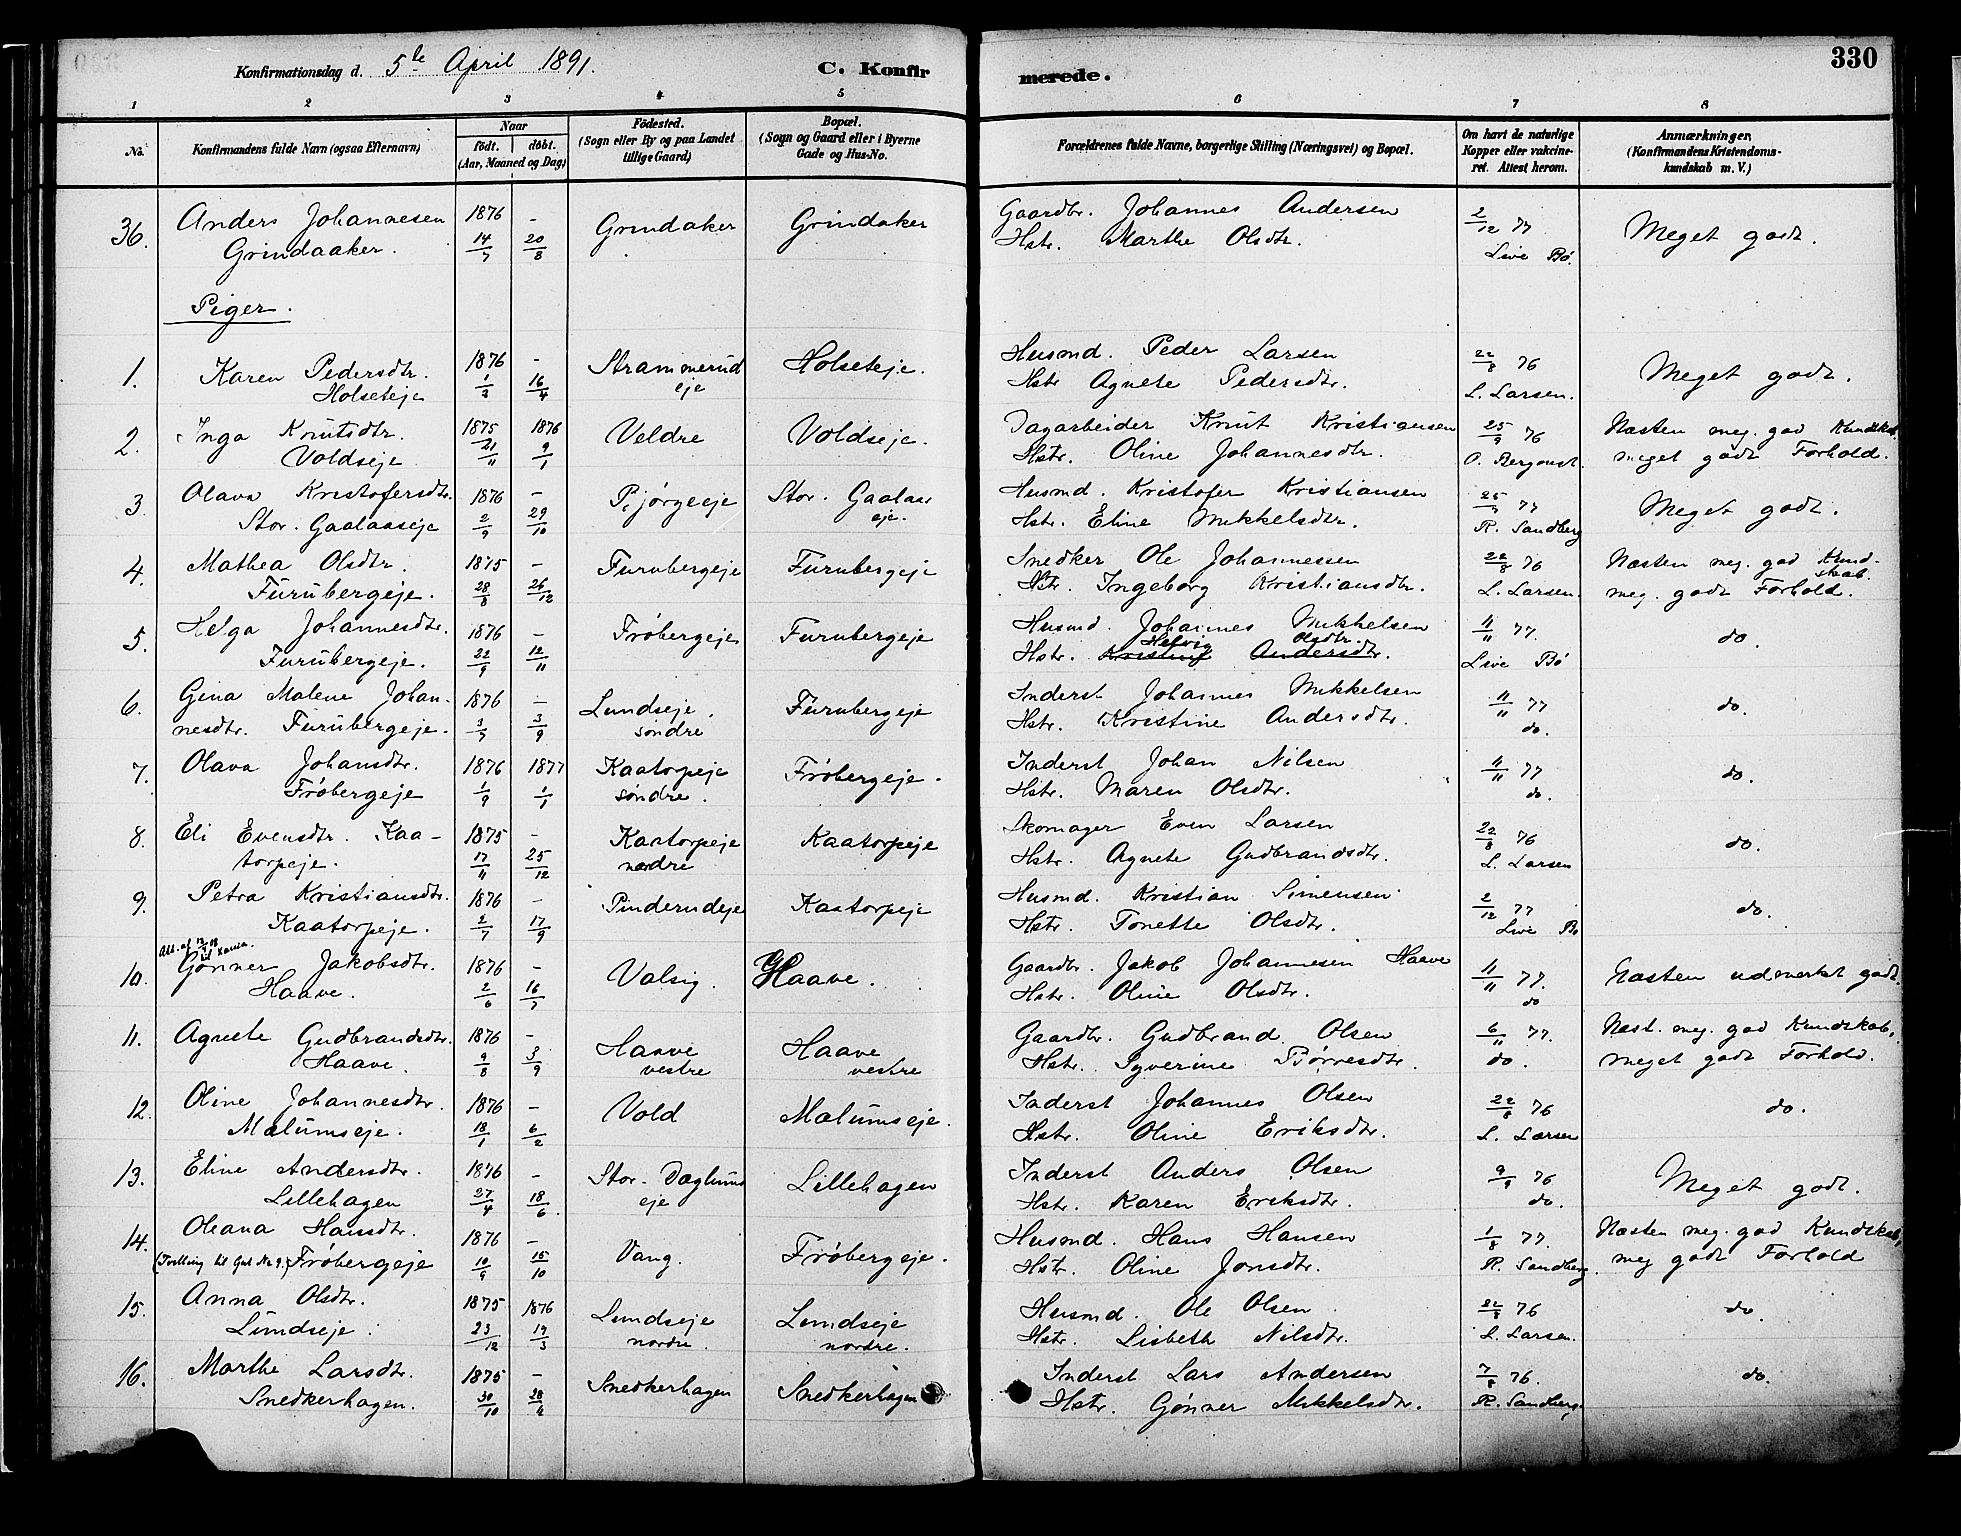 330
Konfirmationsdag d. 5te April 1891.
C. Konfirmerede.
1 2 3 4 5 6 7 8
No.
Konfirmandens fulde Navn (ogsaa Efternavn)
Naar
födt. döbt.
(Aar, Maaned og Dag)
Födested.
(Sogn eller By og paa Landet
tillige Gaard)
Bopæl.
(Sogn og Gaard eller i Byerne
Gade og Hus-No.
Forældrenes fulde Navne, borgerlige Stilling (Næringsvei) og Bopæl.
Om havt de naturlige
Kopper eller vakcine-
ret. Attest herom.
Anmærkninger.
(Konfirmandens Kristendoms-
kundskab m. V.)
36. Anders Johannesen 1876 - Grindaker Grindaker Gaardbr. Johannes Andersen 2/12 77 Meget godt.
Grindaaker. 14/7 20/8 Hstr. Marthe Olsdtr. Live Bö.
Piger.
1. Karen Pedersdtr. 1876 - Strammerud Holseteje. Husmd. Peder Larsen 22/8 76 Meget godt.
Holseteje 1/3 16/4 eje Hstr Agnete Pedersdtr. L. Larsen.
2. Inga Knutsdtr. 1875 1876 Veldre Voldseje. Dagarbeider Knut Kristiansen 25/9 76 Næsten meg. god Kundskab.
Voldseje 21/11 9/1 Hstr. Oline Johannesdtr. meget godt Forhold.
3. Olava Kristofersdtr. 1876 - Pjörgeeje Stor. Gaalaas Husmd. Kristofer Kristiansen 25/9 77 Meget godt.
Stor. Gaalaaseje 2/9 29/10 eje. Hstr. Eline Mikkelsdtr. R. Sandberg
4. Mathea Olsdtr. 1875 - Furubergeje Furubergeje Snedker Ole Johannessen 22/8 76 Næsten meg. god Kund-
skab.
Furubergeje. 28/8 26/12 Hstr. Ingeborg Kristiansdtr. L. Larsen. meg. godt Forhold.
5. Helga Johannesdtr. 1876 - Fröbergeje Furubergeje Husmd. Johannes Mikkelsen 11/11 77. do
Helvig Olsdtr.
Furubergeje. 22/9 12/11 Hstr. Kristine Andersdtr. Live Bö
6. Gina Malene Johan- 1876 - Lundseje. Furubergeje Inderst Johannes Mikkelsen 11/11 77 do.
nesdtr. Furubergeje. 3/7 3/9 söndre Hstr. Kristine Andersdtr. do.
7. Olava Johansdtr. 1876 1877 Kaatorpeje Fröbergeje. Inderst Johan Nilsen 11/11 77 do.
Fröbergeje 1/9 1/1 söndre. Hstr. Maren Olsdtr. do.
8. Eli Evensdtr. Kaa- 1875 - Kaatorpeje Kaatorpeje Skomager Even Larsen 22/8 76 do.
torpeje. 17/11 25/12 nordre Hstr. Agnete Gudbrandsdtr. L. Larsen
9. Petra Kristiansdtr. 1876 - Pinderudeje Kaatorpeje Husmd. Kristian Simensen 2/12 77 do.
Kaatorpeje. 2/7 17/9 Hstr. Tonette Olsdtr. Live Bö
10. Gönner Jakobsdtr. 1876 - Valsig. Haave. Gaardbr. Jakob Johannesen Haave 11/11 77. Næsten udmerket godt.
Haave. 2/6 16/7 Hstr. Oline Olsdtr. do
11. Agnete Gudbrandsdtr. 1876 - Haave Haave Gaardbr. Gudbrand Olsen 6/11 77. Næst. meg. god Kundskab,
Haave. 9/8 3/9 vestre vestre Hstr. Syverine Börresdtr. do. meget godt Forhold.
12. Oline Johannesdtr. 1876 - Vold Malumseje. Inderst Johannes Olsen 22/8 76 do.
Malumseje. 18/1 6/2 Hstr. Oline Eriksdtr. L. Larsen
13. Eline Andersdtr. 1876 - Stor. Daglums Lillehagen Inderst Anders Olsen 9/9 76 Meget godt.
Lillehagen 27/4 18/6. eje Hstr. Karen Eriksdtr. do.
14. Oleana Hansdtr. 1876 - Vang. Fröbergeje. Husmd. Hans Hansen 1/8 77. Næsten meg. god Kundskab,
(Tvilling til Gut No 9.) Fröbergeje 10/9 15/10 Hstr. Oline Jonsdtr. R. Sandberg. meg godt Forhold
15. Anna Olsdtr. 1875 1876 Lundseje Lundseje Husmd. Ole Olsen 22/8 76 do
Lundseje. 23/12 19/3 nordre. nordre. Hstr. Lisbeth Nilsdtr. L. Larsen.
16. Marthe Larsdtr. 1875 - Snedkerhagen Snedkerhagen Inderst Lars Andersen 7/8 76. do.
Snedkerhagen. 30/10 28/4 Hstr. Gönner Mikkelsdtr. R. Sandberg.